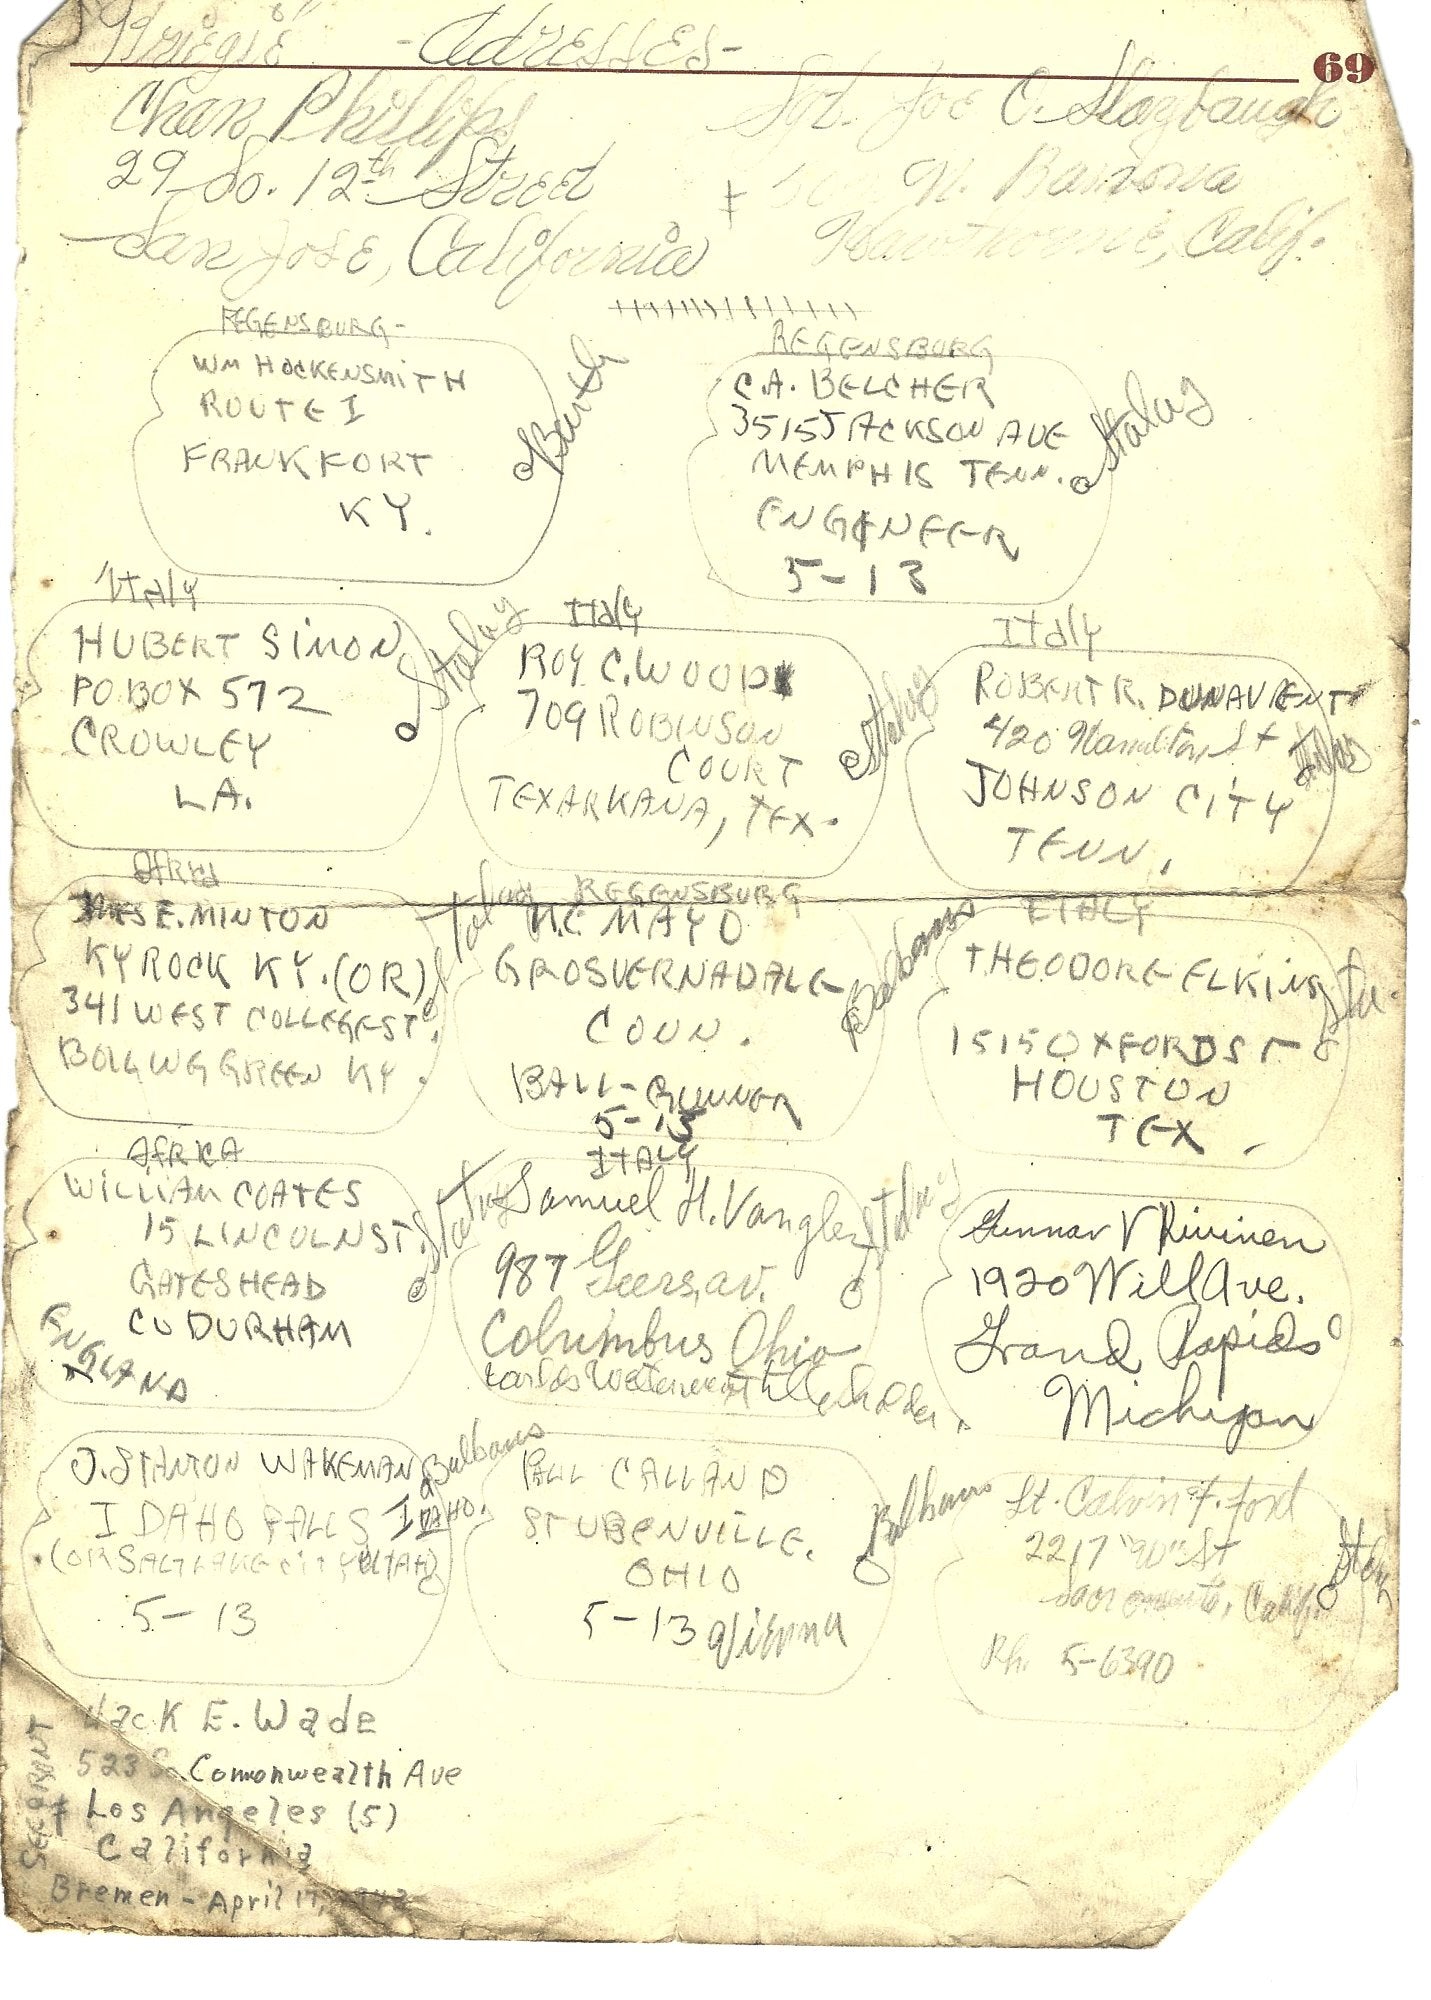 Kriegie - Adresses -
69
Chan Phillips
29 So. 12th Street
San Jose, California
Sgt. Joe O. Slazbaugh
N. Ramona
Hawthorne, Calif.
REGENSBURG-
WM HOCKENSMITH
ROUTE I
FRANKFORT
KY.
REGENSBURG
C.A. BELCHER
3515 JACKSON AVE
MEMPHIS TENN.
ENGINEER
5-13
Stalag
Italy
HUBERT SIMON
PO BOX 572
CROWLEY
LA.
Stalag
Italy
ROY C. WOOD
709 ROBINSON
COURT
TEXARKANA, TEX.
Stalag
Italy
ROBERT R. DUNAVENT
420 Hamilton St
JOHNSON CITY
TENN.
Africa
E. MINTON
KYROCK KY. (OR)
341 WEST COLLEGE ST.
BOLLWG GREEN KY.
Stalag
REGENSBURG
N.C. MAYO
GROSVERNADALE
CONN.
BALL-GUNNER
5-13
ITALY
THEODORE ELKINS
1515 OXFORD ST
HOUSTON
TEX.
AfRICA
WILLIAM COATES
15 LINCOLN ST.
GATESHEAD
CO DURHAM
ENGLAND
Stalag
ITALY
Samuel H. Vangler
987 Geers, av.
Columbus Ohio
Stalag
Gunnar V Kivinen
1920 Will Ave.
Grand Rapids
Michigan
J. STANTON WAKEMAN
IDAHO FALLS IDAHO.
(OR SALT LAKE CITY UTAH)
5-13
Balbans
PAUL CALLAND
STUBENVILLE.
OHIO
5-13 Vienna
Balbans
Lt. Calvin F. Ford
2217 "W" St
Sacramento, Calif.
Ph. 5-6390
Jack E. Wade
523 So Comonwealth Ave
Los Angeles (5)
California
Bremen - April 17,